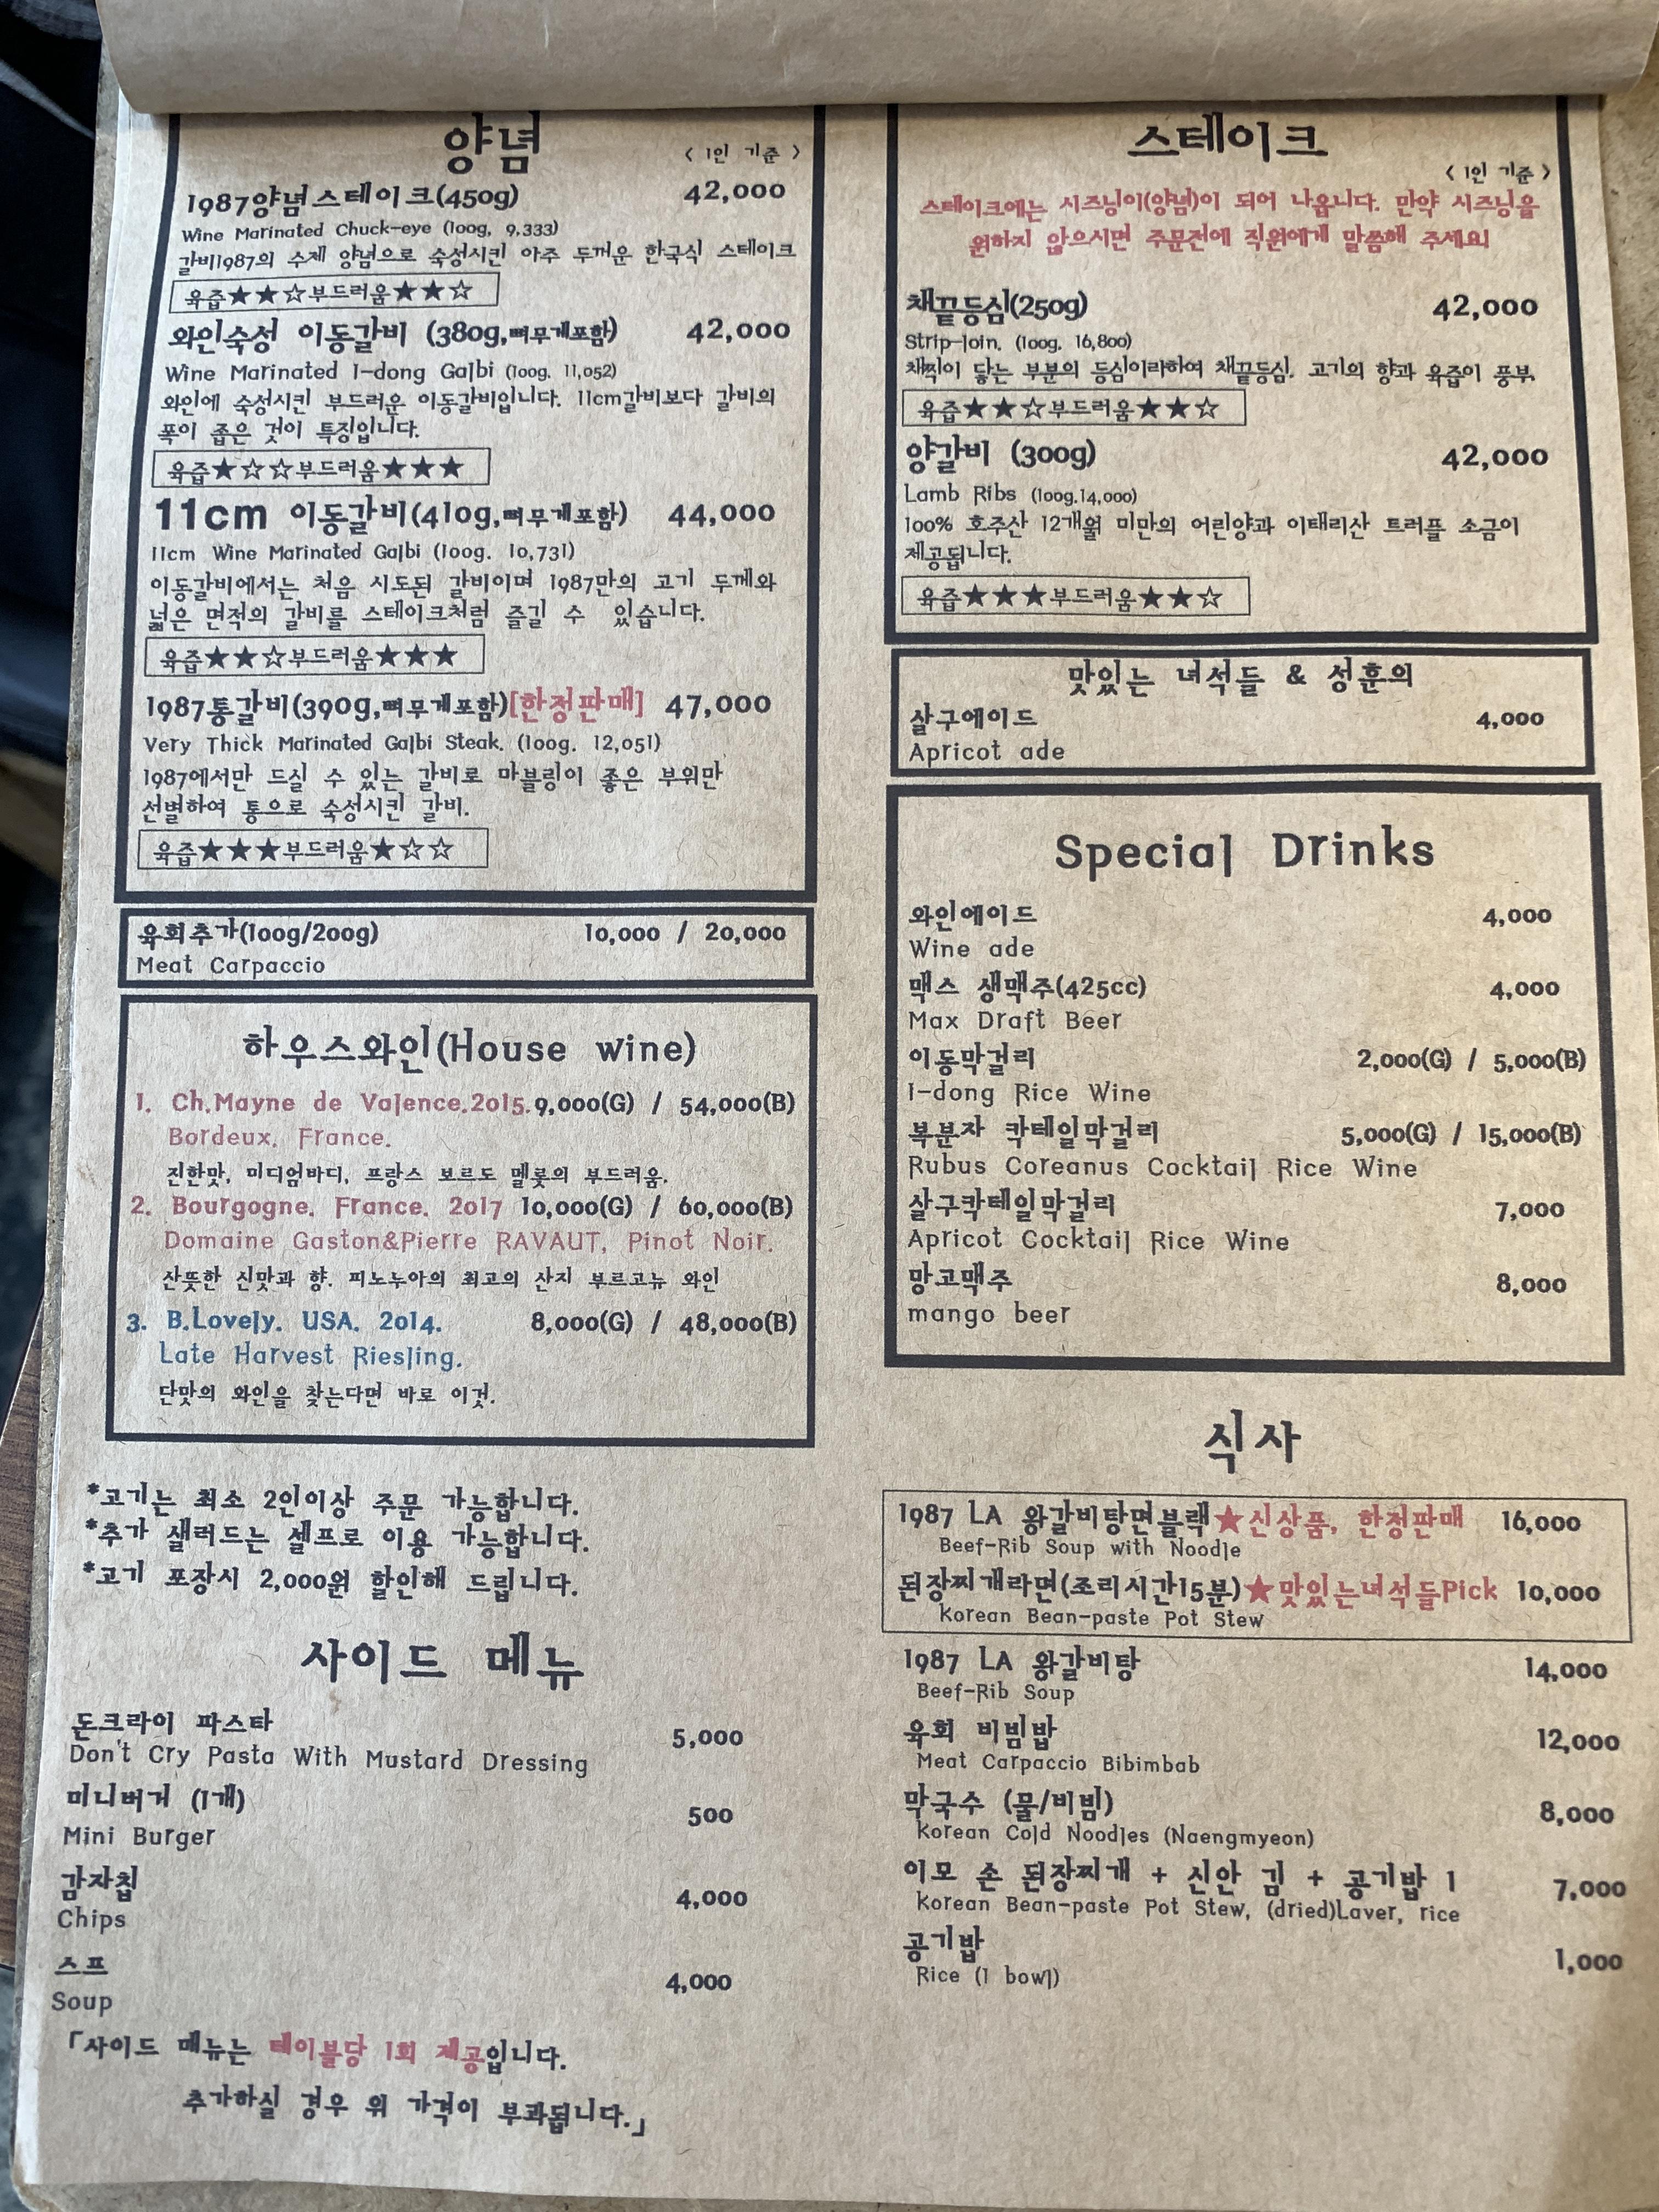 양념
< 1인 기준 >
1987양념스테이크(450g) 42,000
Wine Marinated Chuck-eye (100g, 9,333)
갈비1987의 수제 양념으로 숙성시킨 아주 두꺼운 한국식 스테이크
육즙★★☆부드러움★★☆
와인숙성 이동갈비 (380g,뼈무게포함) 42,000
Wine Marinated I-dong Galbi (100g. 11,052)
와인에 숙성시킨 부드러운 이동갈비입니다. 11cm갈비보다 갈비의
폭이 좁은 것이 특징입니다.
육즙★☆☆부드러움★★★
11cm 이동갈비(410g,뼈무게포함) 44,000
11cm Wine Marinated Galbi (100g. 10,731)
이동갈비에서는 처음 시도된 갈비이며 1987만의 고기 두께와
넓은 면적의 갈비를 스테이크처럼 즐길 수 있습니다.
육즙★★☆부드러움★★★
1987통갈비(390g,뼈무게포함)[한정판매] 47,000
Very Thick Marinated Galbi Steak. (100g. 12,051)
1987에서만 드실 수 있는 갈비로 마블링이 좋은 부위만
선별하여 통으로 숙성시킨 갈비.
육즙★★★부드러움★☆☆
육회추가(100g/200g) 10,000 / 20,000
Meat Carpaccio
하우스와인(House wine)
1. Ch.Mayne de Valence.2015. 9,000(G) / 54,000(B)
Bordeux. France.
진한맛, 미디엄바디, 프랑스 보르도 멜롯의 부드러움.
2. Bourgogne. France. 2017 10,000(G) / 60,000(B)
Domaine Gaston&Pierre RAVAUT, Pinot Noir.
산뜻한 신맛과 향. 피노누아의 최고의 산지 부르고뉴 와인
3. B.Lovely. USA. 2014. 8,000(G) / 48,000(B)
Late Harvest Riesling.
단맛의 와인을 찾는다면 바로 이것.
*고기는 최소 2인이상 주문 가능합니다.
*추가 샐러드는 셀프로 이용 가능합니다.
*고기 포장시 2,000원 할인해 드립니다.
사이드 메뉴
돈크라이 파스타 5,000
Don't Cry Pasta With Mustard Dressing
미니버거 (1개) 500
Mini Burger
감자칩 4,000
Chips
스프 4,000
Soup
「사이드 메뉴는 테이블당 1회 제공입니다.
추가하실 경우 위 가격이 부과됩니다.」
스테이크
< 1인 기준 >
스테이크에는 시즈닝이(양념)이 되어 나옵니다. 만약 시즈닝을
원하지 않으시면 주문전에 직원에게 말씀해 주세요!
채끝등심(250g) 42,000
Strip-loin. (100g. 16,800)
채찍이 닿는 부분의 등심이라하여 채끝등심. 고기의 향과 육즙이 풍부.
육즙★★☆부드러움★★☆
양갈비 (300g) 42,000
Lamb Ribs (100g.14,000)
100% 호주산 12개월 미만의 어린양과 이태리산 트러플 소금이
제공됩니다.
육즙★★★부드러움★★☆
맛있는 녀석들 & 성훈의
살구에이드 4,000
Apricot ade
Special Drinks
와인에이드 4,000
Wine ade
맥스 생맥주(425cc) 4,000
Max Draft Beer
이동막걸리 2,000(G) / 5,000(B)
I-dong Rice Wine
복분자 칵테일막걸리 5,000(G) / 15,000(B)
Rubus Coreanus Cocktail Rice Wine
살구칵테일막걸리 7,000
Apricot Cocktail Rice Wine
망고맥주 8,000
mango beer
식사
1987 LA 왕갈비탕면블랙★신상품, 한정판매 16,000
Beef-Rib Soup with Noodle
된장찌개라면(조리시간15분)★맛있는녀석들Pick 10,000
Korean Bean-paste Pot Stew
1987 LA 왕갈비탕 14,000
Beef-Rib Soup
육회 비빔밥 12,000
Meat Carpaccio Bibimbab
막국수 (물/비빔) 8,000
Korean Cold Noodles (Naengmyeon)
이모 손 된장찌개 + 신안 김 + 공기밥 1 7,000
Korean Bean-paste Pot Stew, (dried)Laver, rice
공기밥 1,000
Rice (1 bowl)